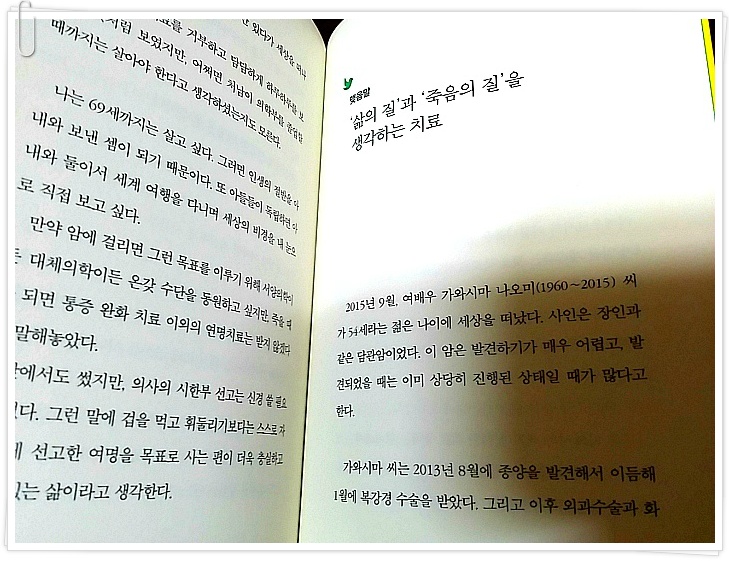 있다가 세상을 떠나
처럼 보였지만, 어쩌면 처남이 의학부를 졸업할
료를 거부하고 담담하게 하루하루를 보
때까지는 살아야 한다고 생각하셨는지도 모른다.
나는 69세까지는 살고 싶다. 그러면 인생의 절반을 아
내와 보낸 셈이 되기 때문이다. 또 아들들이 독립하면 아
내와 둘이서 세계 여행을 다니며 세상의 비경을 내 눈으
로 직접 보고 싶다.
만약 암에 걸리면 그런 목표를 이루기 위해 서양의학이
든 대체의학이든 온갖 수단을 동원하고 싶지만, 죽을 때
되면 통증 완화 치료 이외의 연명치료는 받지 않겠다
말해놓았다.
에서도 썼지만, 의사의 시한부 선고는 신경 쓸 필요
다. 그런 말에 겁을 먹고 휘둘리기보다는 스스로 자
선고한 여명을 목표로 사는 편이 더욱 충실하고
있는 삶이라고 생각한다.
맺음말
‘삶의 질’과 ‘죽음의 질’을
생각하는 치료
2015년 9월, 여배우 가와시마 나오미(1960~2015) 씨
가 54세라는 젊은 나이에 세상을 떠났다. 사인은 장인과
같은 담관암이었다. 이 암은 발견하기가 매우 어렵고, 발
견되었을 때는 이미 상당히 진행된 상태일 때가 많다고
한다.
가와시마 씨는 2013년 8월에 종양을 발견해서 이듬해
1월에 복강경 수술을 받았다. 그리고 이후 외과수술과 화